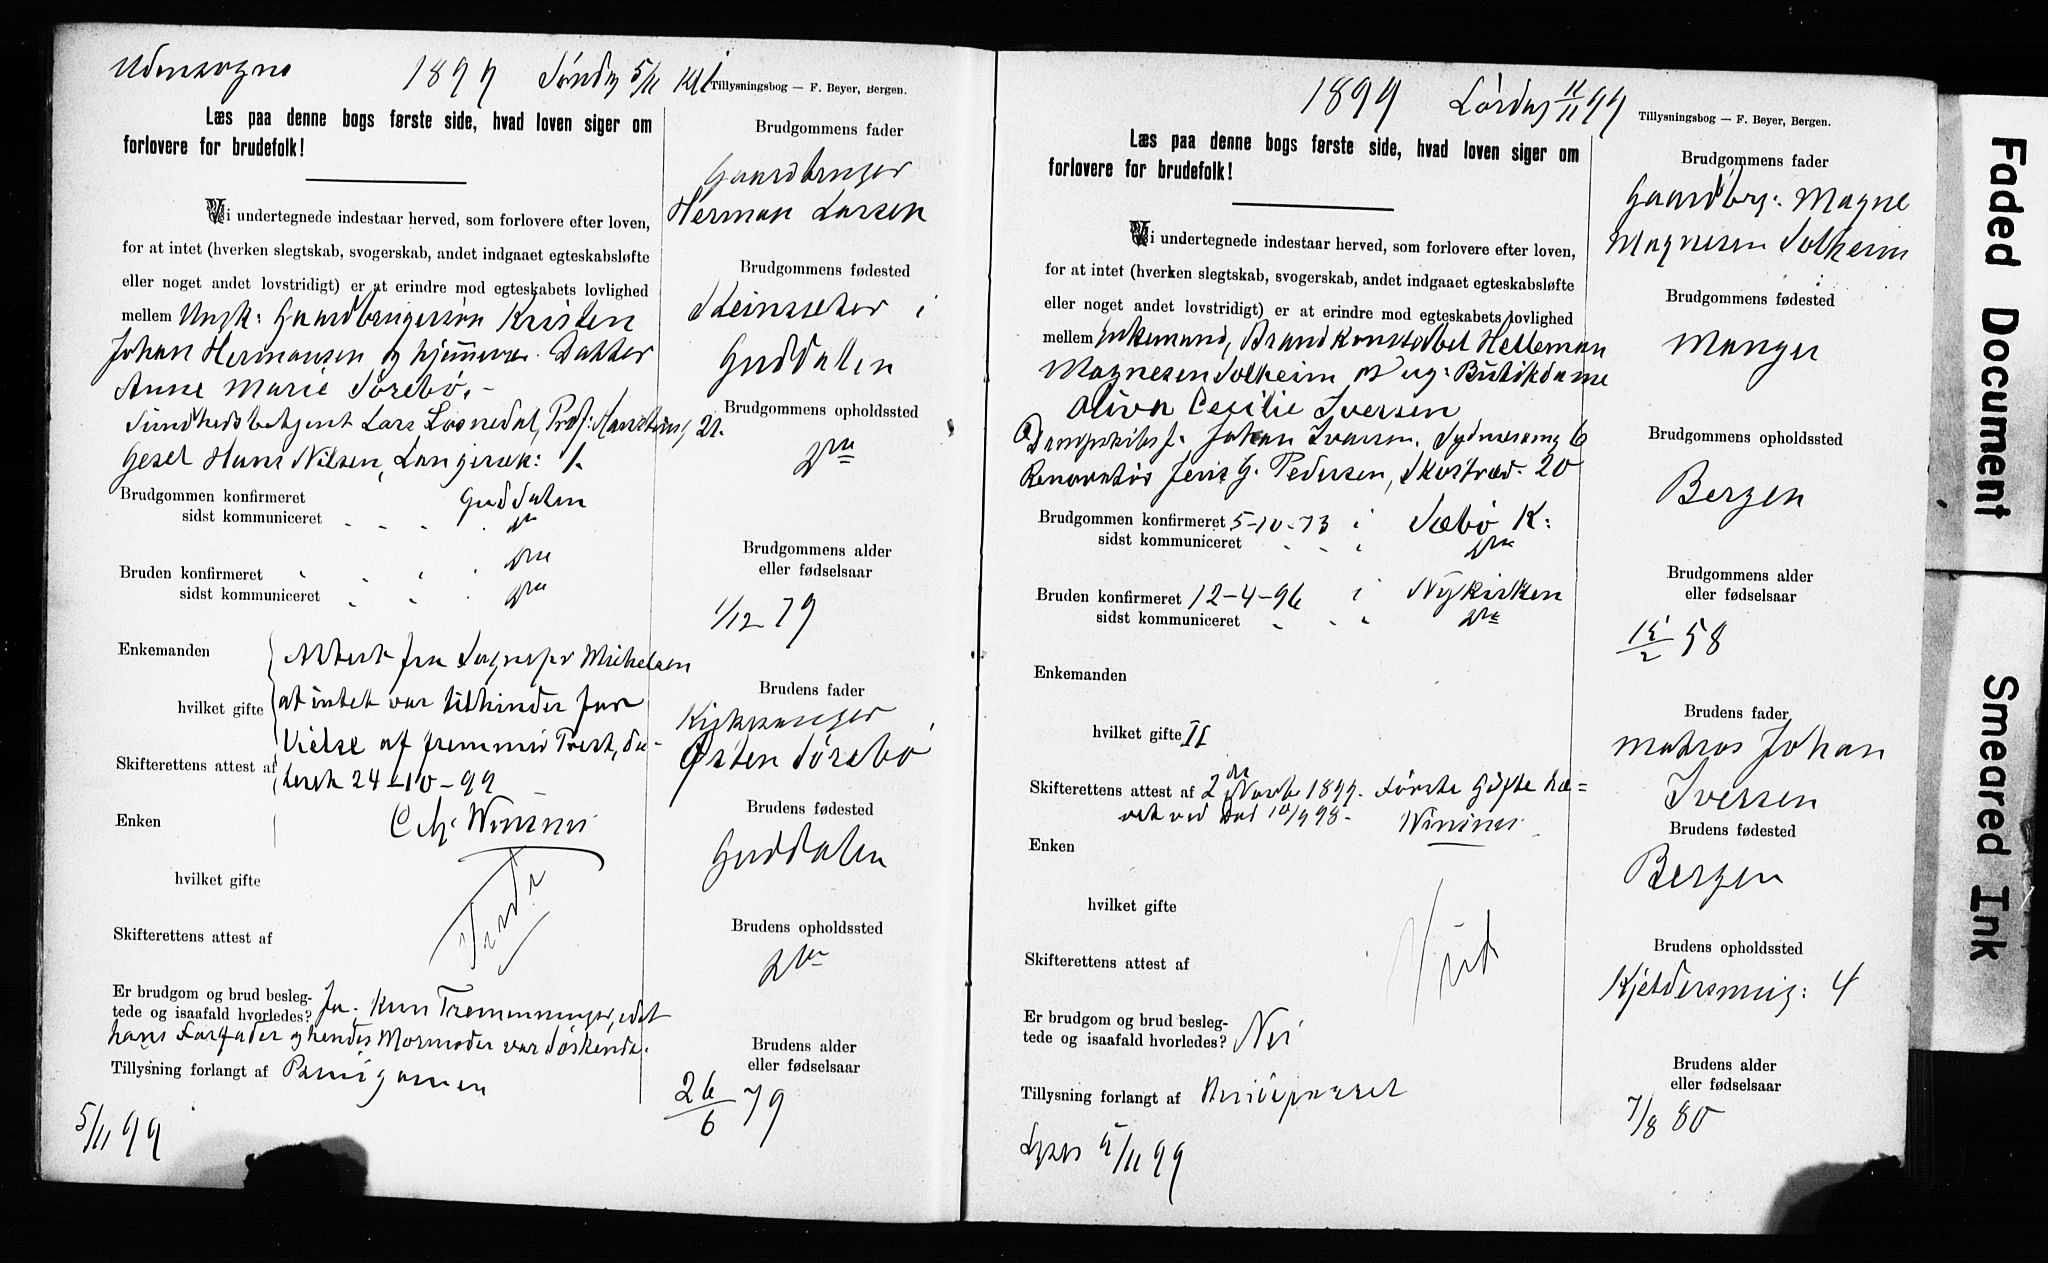 Udensogns 1899 Søndag 5/11 Kl
Tillysningsbog — F. Beyer, Bergen.
Læs paa denne bogs første side, hvad loven siger om
forlovere for brudefolk!
Vi undertegnede indestaar herved, som forlovere efter loven,
for at intet (hverken slegtskab, svogerskab, andet indgaaet egteskabsløfte
eller noget andet lovstridigt) er at erindre mod egteskabets lovlighed
mellem Ungk: Gaardbrugersøn Kristen
Johan Hermansen og hjemmev. Datter
Anne Marie Sørebø.
Sundhedsbetjent Lars Losnedal, Prof: Hansteens 21.
Gesel Hans Nilsen, Langevek: 1.
Brudgommen konfirmeret Guddalen
sidst kommuniceret
Bruden konfirmeret
sidst kommuniceret
Enkemanden Attest fra Sognepr Michelsen
hvilket gifte at intet var tilhinder for
Vielse af fremmed Prest, da-
Skifterettens attest af teret 24-10-99
Enken
hvilket gifte
Skifterettens attest af
Er brudgom og brud besleg-
tede og isaafald hvorledes? Ja. Kun Tremenninger, idet
hans Farfader og hendes Mormoder var Søskende.
Tillysning forlangt af Brudgommen
5/11 99
Brudgommens fader
Gaardbruger
Herman Larsen
Brudgommens fødested
Steinsæter i
Guddalen
Brudgommens opholdssted
Brudgommens alder
eller fødselsaar
1/12 79
Brudens fader
Kirkesanger
Østen Sørebø
Brudens fødested
Guddalen
Brudens opholdssted
Brudens alder
eller fødselsaar
26/6 79
1899 Lørdag 11/11 99
Tillysningsbog — F. Beyer, Bergen.
Læs paa denne bogs første side, hvad loven siger om
forlovere for brudefolk!
Vi undertegnede indestaar herved, som forlovere efter loven,
for at intet (hverken slegtskab, svogerskab, andet indgaaet egteskabsløfte
eller noget andet lovstridigt) er at erindre mod egteskabets lovlighed
mellem Enkemand, Brandkonstabel Helleman
Magnesen Solheim og ug: Butikdame
Oliva Cecilie Iversen
Dampskibsf. Johan Iversen. Sydnessmug 6
Renovatør Jens G. Pedersen, Skostræd. 20
Brudgommen konfirmeret 5-10-73 i Sæbø K:
sidst kommuniceret
Bruden konfirmeret 12-4-96 i Nykirken
sidst kommuniceret
Enkemanden
hvilket gifte II
Skifterettens attest af 2den Novbr 1899. Første Gifte hæ=
vet ved Død 10/9 98.
Enken
hvilket gifte
Skifterettens attest af
Er brudgom og brud besleg-
tede og isaafald hvorledes? Nei
Tillysning forlangt af Brudeparret
Lyses 5/11 99
Brudgommens fader
Gaardbrg: Magne
Magnesen Solheim
Brudgommens fødested
Manger
Brudgommens opholdssted
Bergen
Brudgommens alder
eller fødselsaar
15/2 58
Brudens fader
Matros Johan
Iversen
Brudens fødested
Bergen
Brudens opholdssted
Kjeldersmug: 4
Brudens alder
eller fødselsaar
7/8 80
Faded Document
Smeared Ink